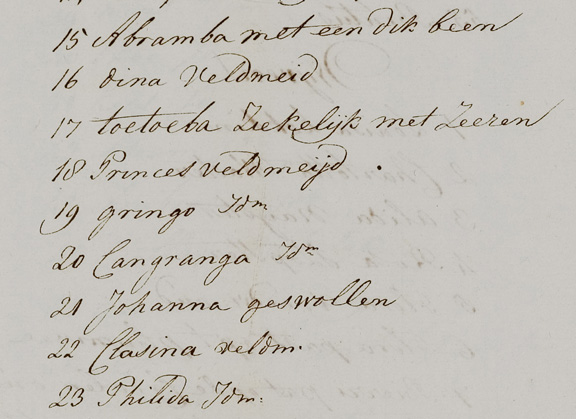 15 Abramba met een dik been
16 dina Veldmeid
17 toetoeba Ziekelijk met Zeeren
18 Princes veldmeijd
19 gringo Idm
20 Cangranga Idm
21 Johanna geswollen
22 Clasina veldm.
23 Philida Idm: